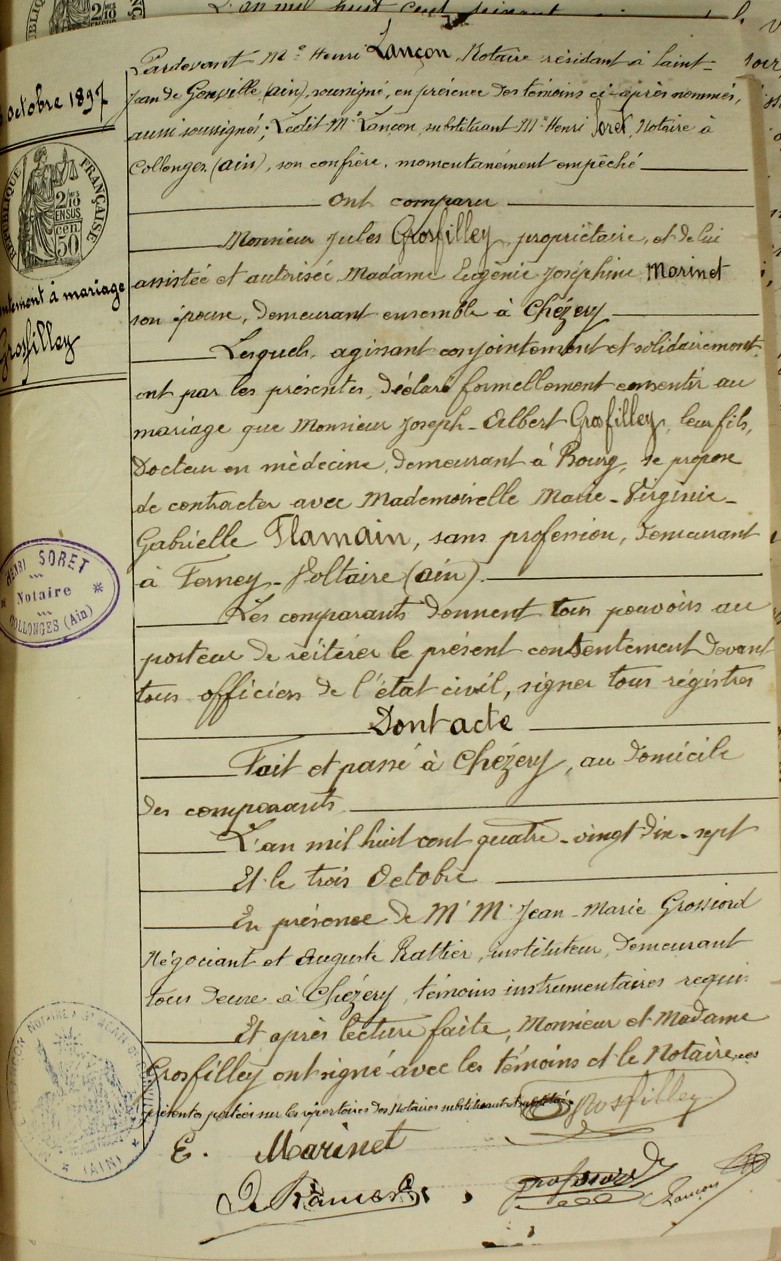 Pardevant Mᵉ Henri Lançon Notaire résidant à Saint-
Jean de Gonville (ain), soussigné, en présence des témoins ci-après nommés,
aussi soussignés; Ledit Mᵉ Lançon, substituant Mᵉ Henri Soret, Notaire à
Collonges (ain), son confrère, momentanément empêché
octobre 1897
RÉPUBLIQUE FRANÇAISE
2/10 EN SUS
50 cen
ont comparu
Monsieur Jules Grosfilley, propriétaire, et de lui
assistée et autorisée Madame Eugénie Joséphine Marinet
son épouse, demeurant ensemble à Chézery
ntement à mariage
Grosfilley
Lesquels, agissant conjointement et solidairement
ont par les présentes, déclaré formellement consentir au
mariage que Monsieur Joseph-Albert Grosfilley, leur fils,
Docteur en médecine, demeurant à Bourg, se propose
de contracter avec Mademoiselle Marie-Virginie-
Gabrielle Flamain, sans profession, demeurant
à Ferney-Voltaire (ain).
HENRI SORET
Notaire
COLLONGES (Ain)
Les comparants donnent tous pouvoirs au
porteur de réitérer le présent consentement devant
tous officiers de l'état civil, signer tous régistres
Dont acte
Fait et passé à Chézery, au domicile
des comparants
L'an mil huit cent quatre-vingt-dix-sept
Et le trois Octobre
En présence de M.M. Jean-Marie Grossiord
Négociant et Auguste Rattier, instituteur, demeurant
tous deux à Chézery, témoins instrumentaires requis.
Et après lecture faite, Monsieur et Madame
Grosfilley ont signé avec les témoins et le Notaire, ces
présentes portées sur les répertoires des Notaires substituant et substitué.
Grosfilley
E. Marinet
Grossiord
Lançon
NOTAIRE À ST JEAN DE
(AIN)